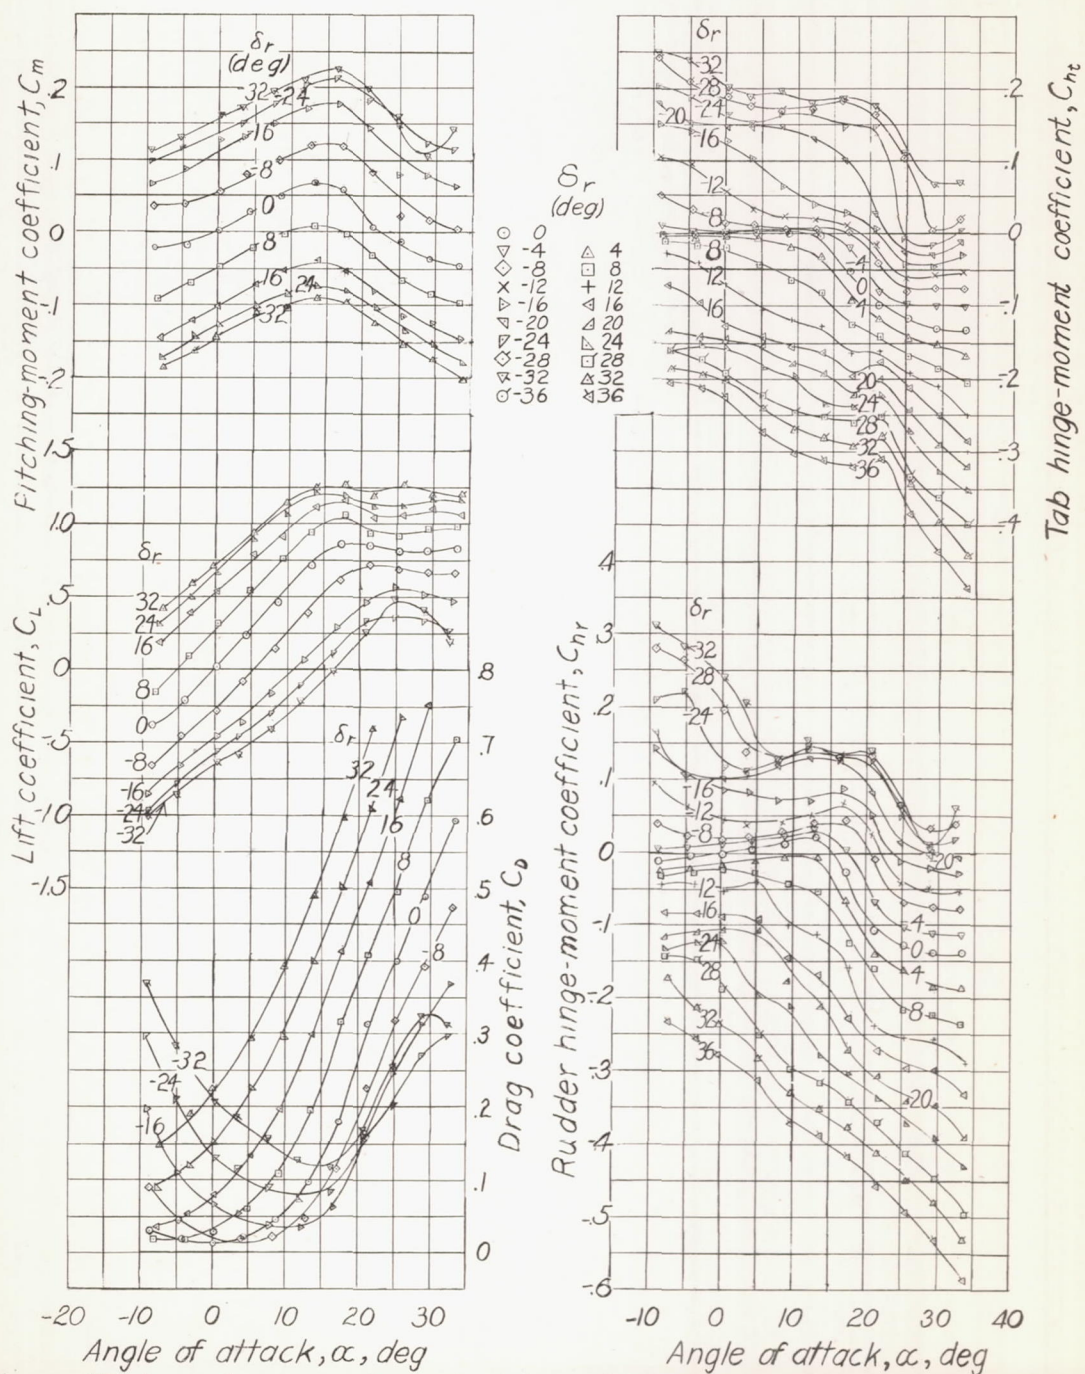 Pitching-moment coefficient, Cm
.2
.1
0
-.1
-.2
δr
(deg)
-32
-24
-16
-8
0
8
16
24
32
Lift coefficient, CL
1.5
1.0
.5
0
-.5
-1.0
-1.5
δr
32
24
16
8
0
-8
-16
-24
-32
Drag coefficient, CD
.8
.7
.6
.5
.4
.3
.2
.1
0
δr
32
24
16
8
0
-8
-32
-24
-16
-20 -10 0 10 20 30
Angle of attack, α, deg
δr
(deg)
0
-4 4
-8 8
-12 12
-16 16
-20 20
-24 24
-28 28
-32 32
-36 36
Tab hinge-moment coefficient, Cht
.2
.1
0
-.1
-.2
-.3
-.4
δr
-32
-28
-24
-20
-16
-12
-8
8
12
16
-4
0
4
20
24
28
32
36
Rudder hinge-moment coefficient, Chr
.4
.3
.2
.1
0
-.1
-.2
-.3
-.4
-.5
-.6
δr
-32
-28
-24
-16
-12
-8
-20
12
16
24
28
32
36
-4
0
4
8
20
-10 0 10 20 30 40
Angle of attack, α, deg